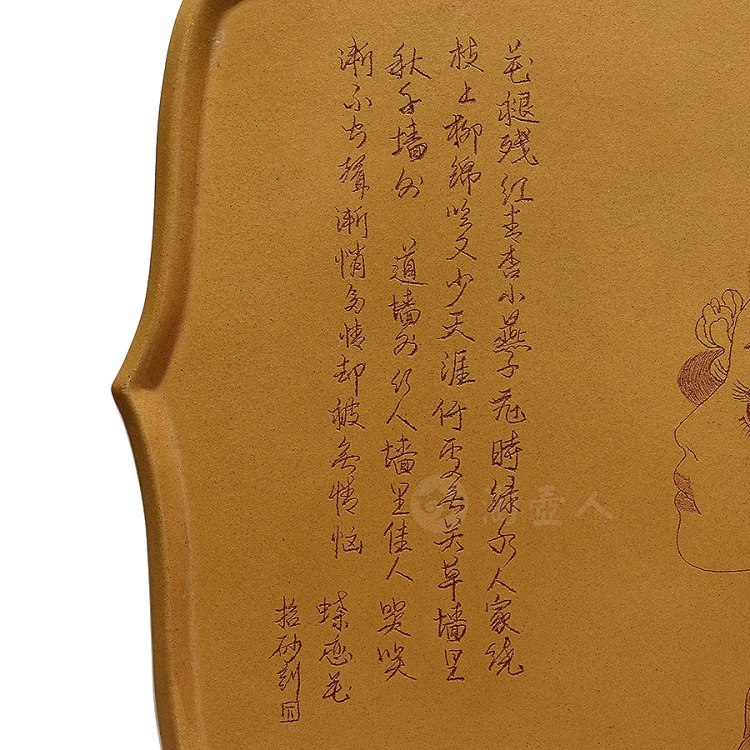 花褪残红青杏小燕子飛時绿水人家绕
枝上柳绵吹又少天涯何处无芳草墙里
秋千墙外 道墙外行人墙里佳人 笑笑
渐不闻聲渐悄多情却被无情恼
蝶恋花
拾砂刻
壺人